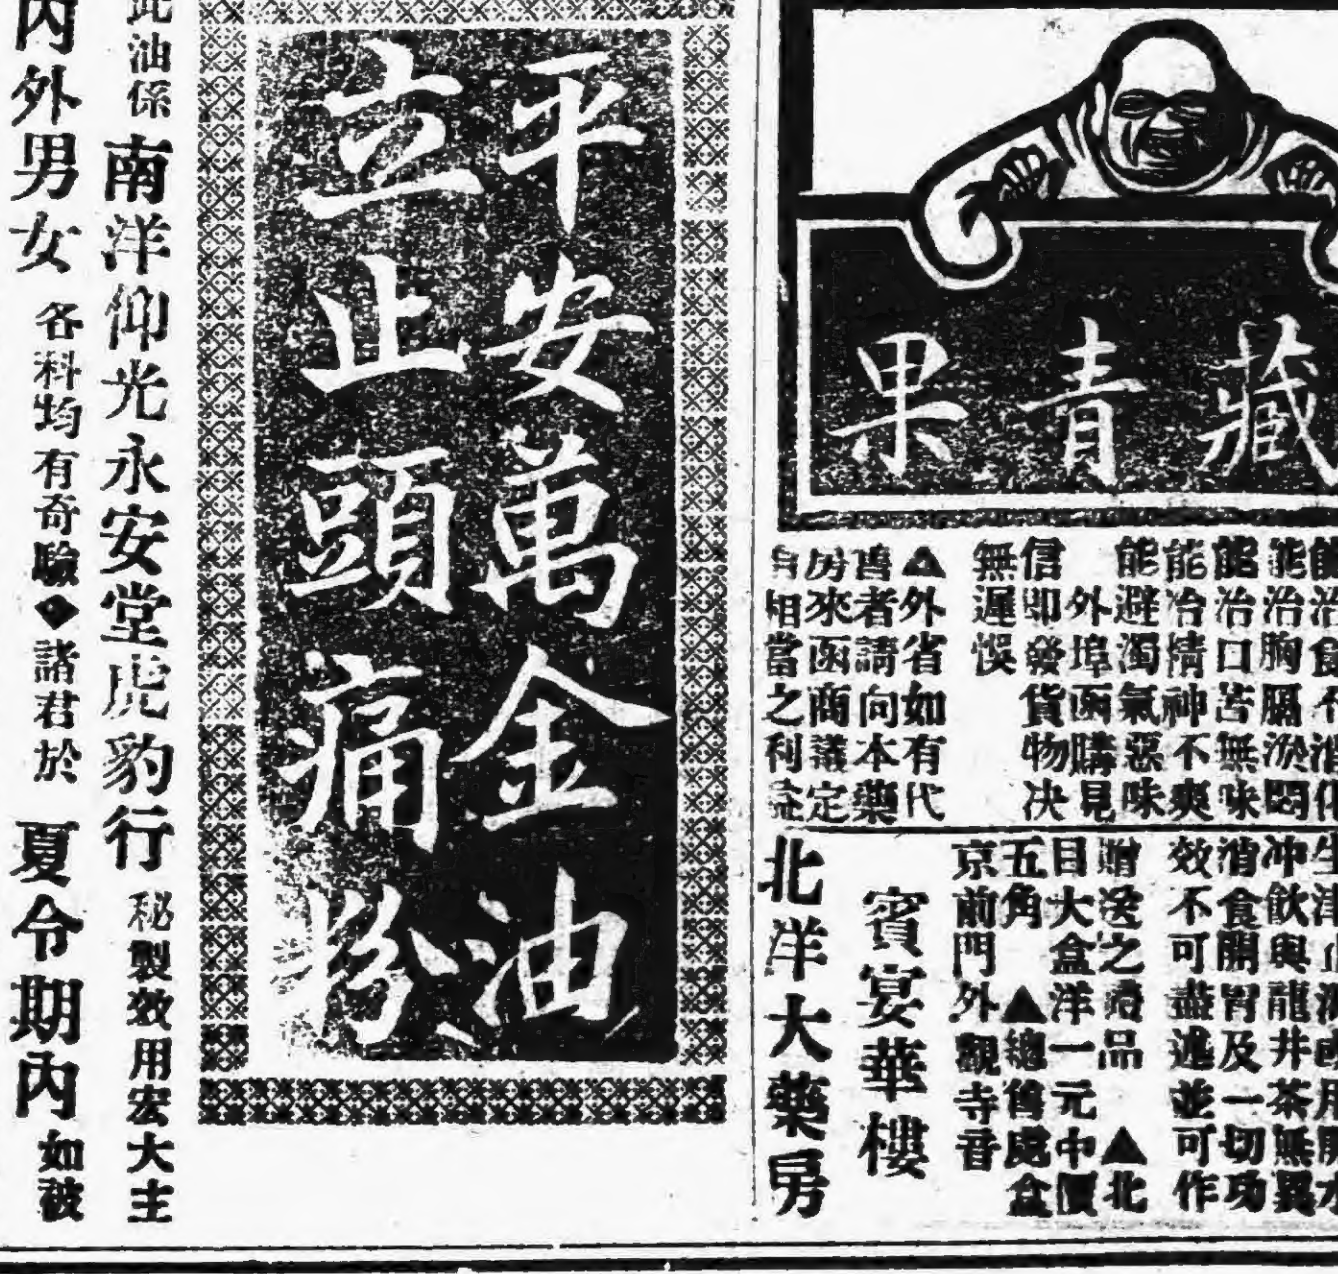 藏青果
能治食不消化
能治胸膈淤悶
能治口苦無味
能治情神不爽
能避濁氣惡味
外埠函購見
信即發貨物决
無遲悞
▲外省如有代
售者請向本藥
房來函商議定
有相當之利益
生津止渴或用開水
冲飲與龍井茶無異
消食開胃及一切功
效不可盡述並可作
贈送之禮品 ▲北
目大盒洋一元中價
五角 ▲總售處盒
京前門外觀寺音
賓宴華樓
北洋大藥房
平安萬金油
立止頭痛粉
此油係南洋仰光永安堂虎豹行秘製效用宏大主
內外男女各科均有奇驗◆諸君於夏令期內如被